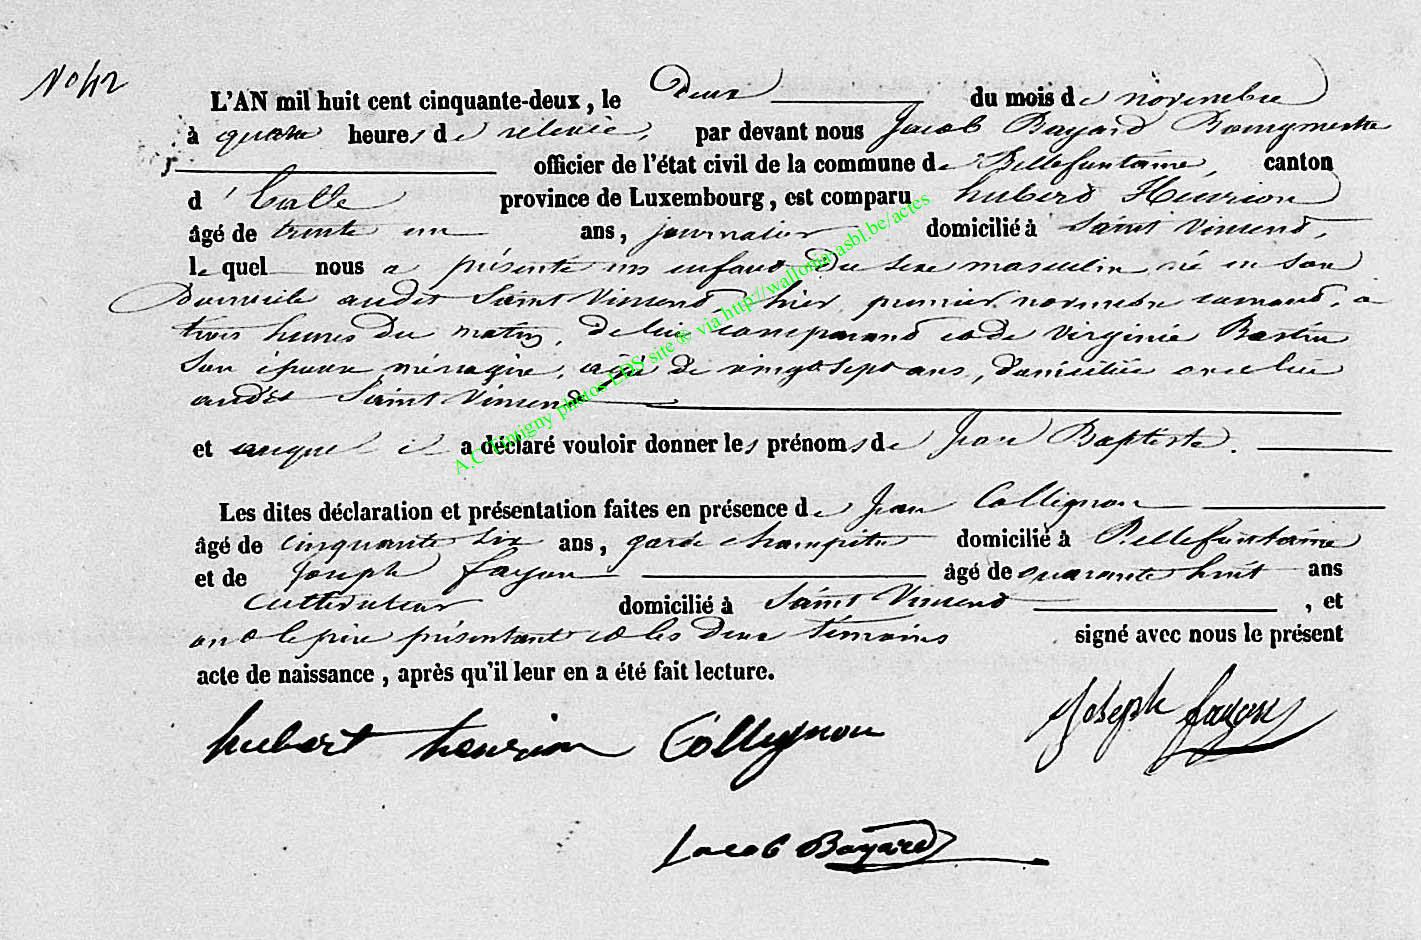 No 42
L'AN mil huit cent cinquante-deux, le deux du mois de novembre
à quatre heures de relevée, par devant nous Jacob Bayard Bourgmestre
officier de l'état civil de la commune de Bellefontaine, canton
d'Etalle province de Luxembourg, est comparu hubert Henrion
âgé de trente un ans, journalier domicilié à Saint Vincent,
lequel nous a présenté un enfant du sexe masculin né en son
Domicile audit Saint Vincent, hier, premier novembre courant, à
trois heures du matin, de lui comparant et de Virginie Bastin
Son épouse ménagère, âgée de vingt sept ans, domiciliée avec lui
audit Saint Vincent
et auquel il a déclaré vouloir donner les prénoms de Jean Baptiste.
Les dites déclaration et présentation faites en présence de Jean Collignon
âgé de cinquante six ans, garde champêtre domicilié à Bellefontaine
et de Joseph fayon âgé de quarante huit ans
cultivateur domicilié à Saint Vincent, et
ont le père présentant et les deux témoins signé avec nous le présent
acte de naissance, après qu'il leur en a été fait lecture.
hubert henrion Collignon Joseph fayon
Jacob Bayard
A.C. Tintigny photos LDS site @ via http://wallonia-asbl.be/actes